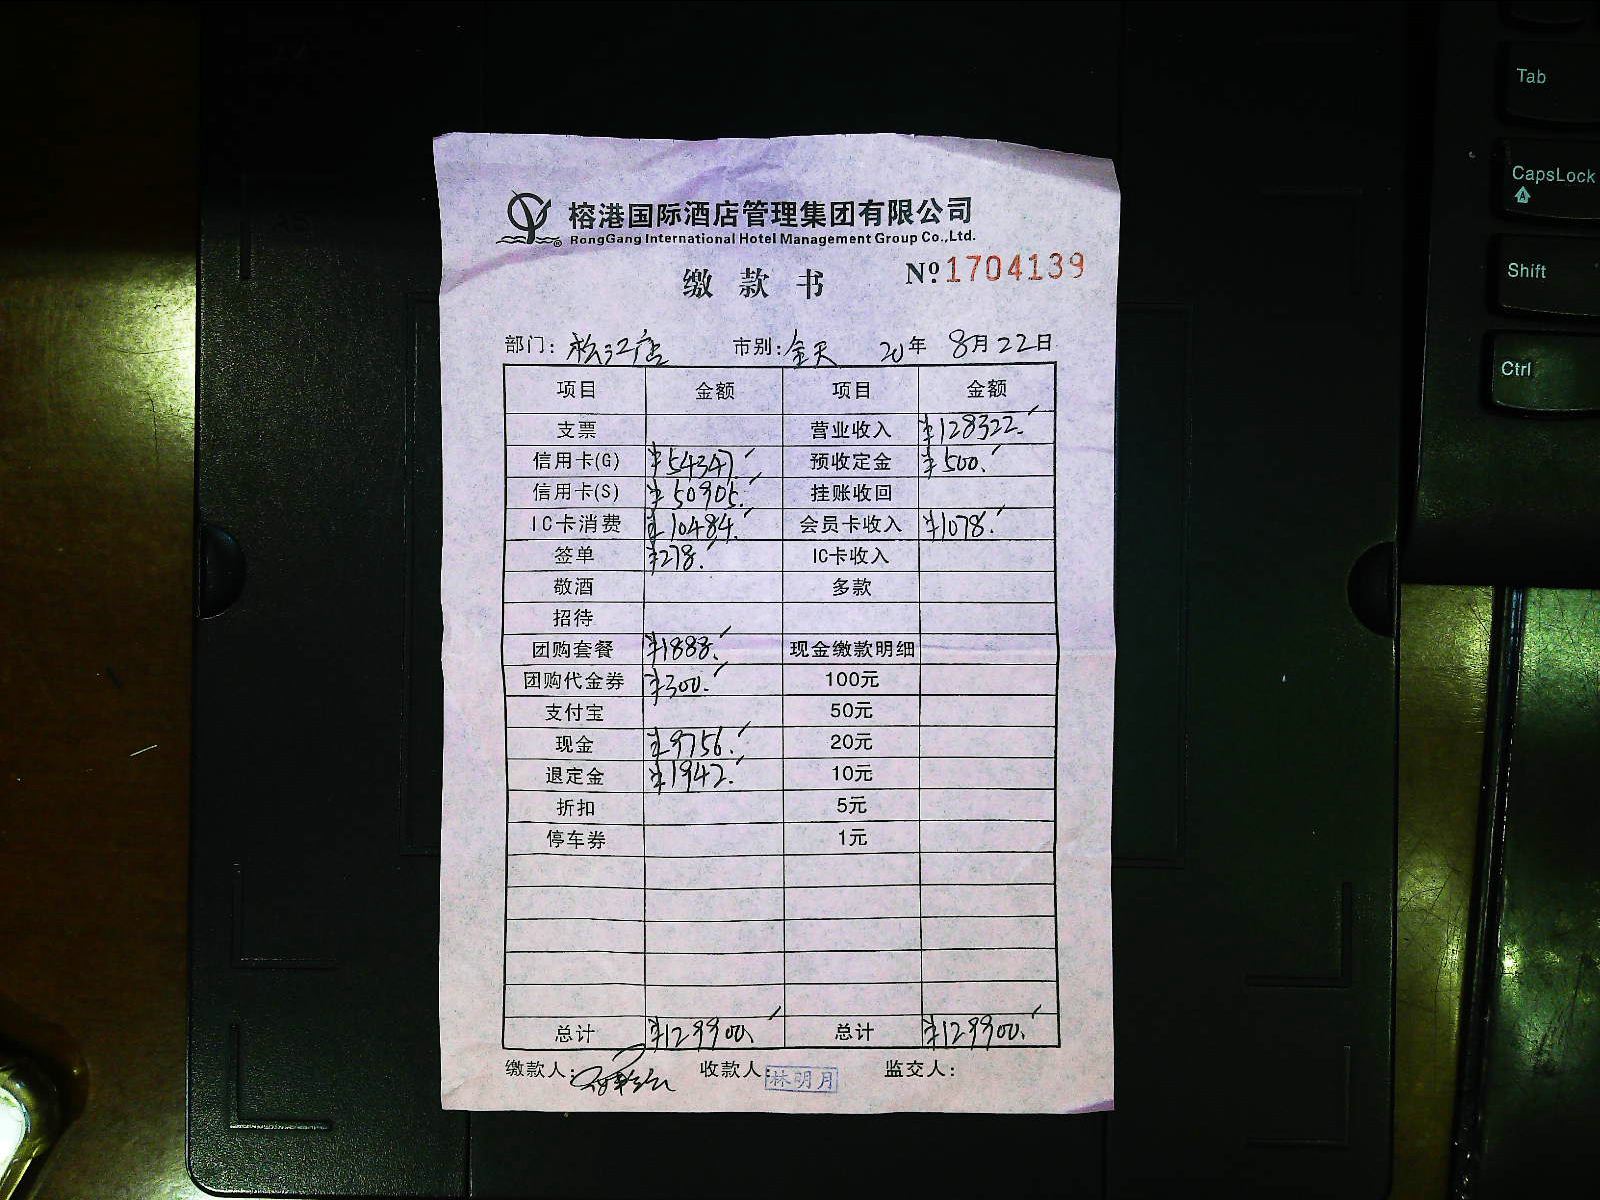 榕港国际酒店管理集团有限公司
RongGang International Hotel Management Group Co.,Ltd.
缴款书 Nº1704139
部门: 松江店 市别: 全天 20年 8月22日
项目 金额 项目 金额
支票 营业收入 ¥128322.
信用卡(G) ¥54347. 预收定金 ¥500.
信用卡(S) ¥50905. 挂账收回
IC卡消费 ¥10484. 会员卡收入 ¥1078.
签单 ¥278. IC卡收入
敬酒 多款
招待
团购套餐 ¥1888. 现金缴款明细
团购代金券 ¥300. 100元
支付宝 50元
现金 ¥9756. 20元
退定金 ¥1942. 10元
折扣 5元
停车券 1元
总计 ¥129900. 总计 ¥129900.
缴款人: 收款人: 林明月 监交人:
Tab
CapsLock
Shift
Ctrl